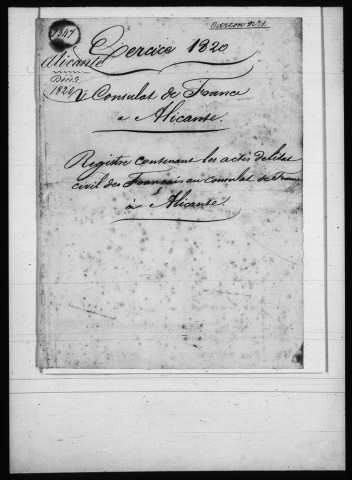 Carton No 1
1347
Exercice 1820
Alicante
1820
Consulat de France
a Alicante
Registre contenant les actes de l'état
civil des Français au consulat de France
à Alicante